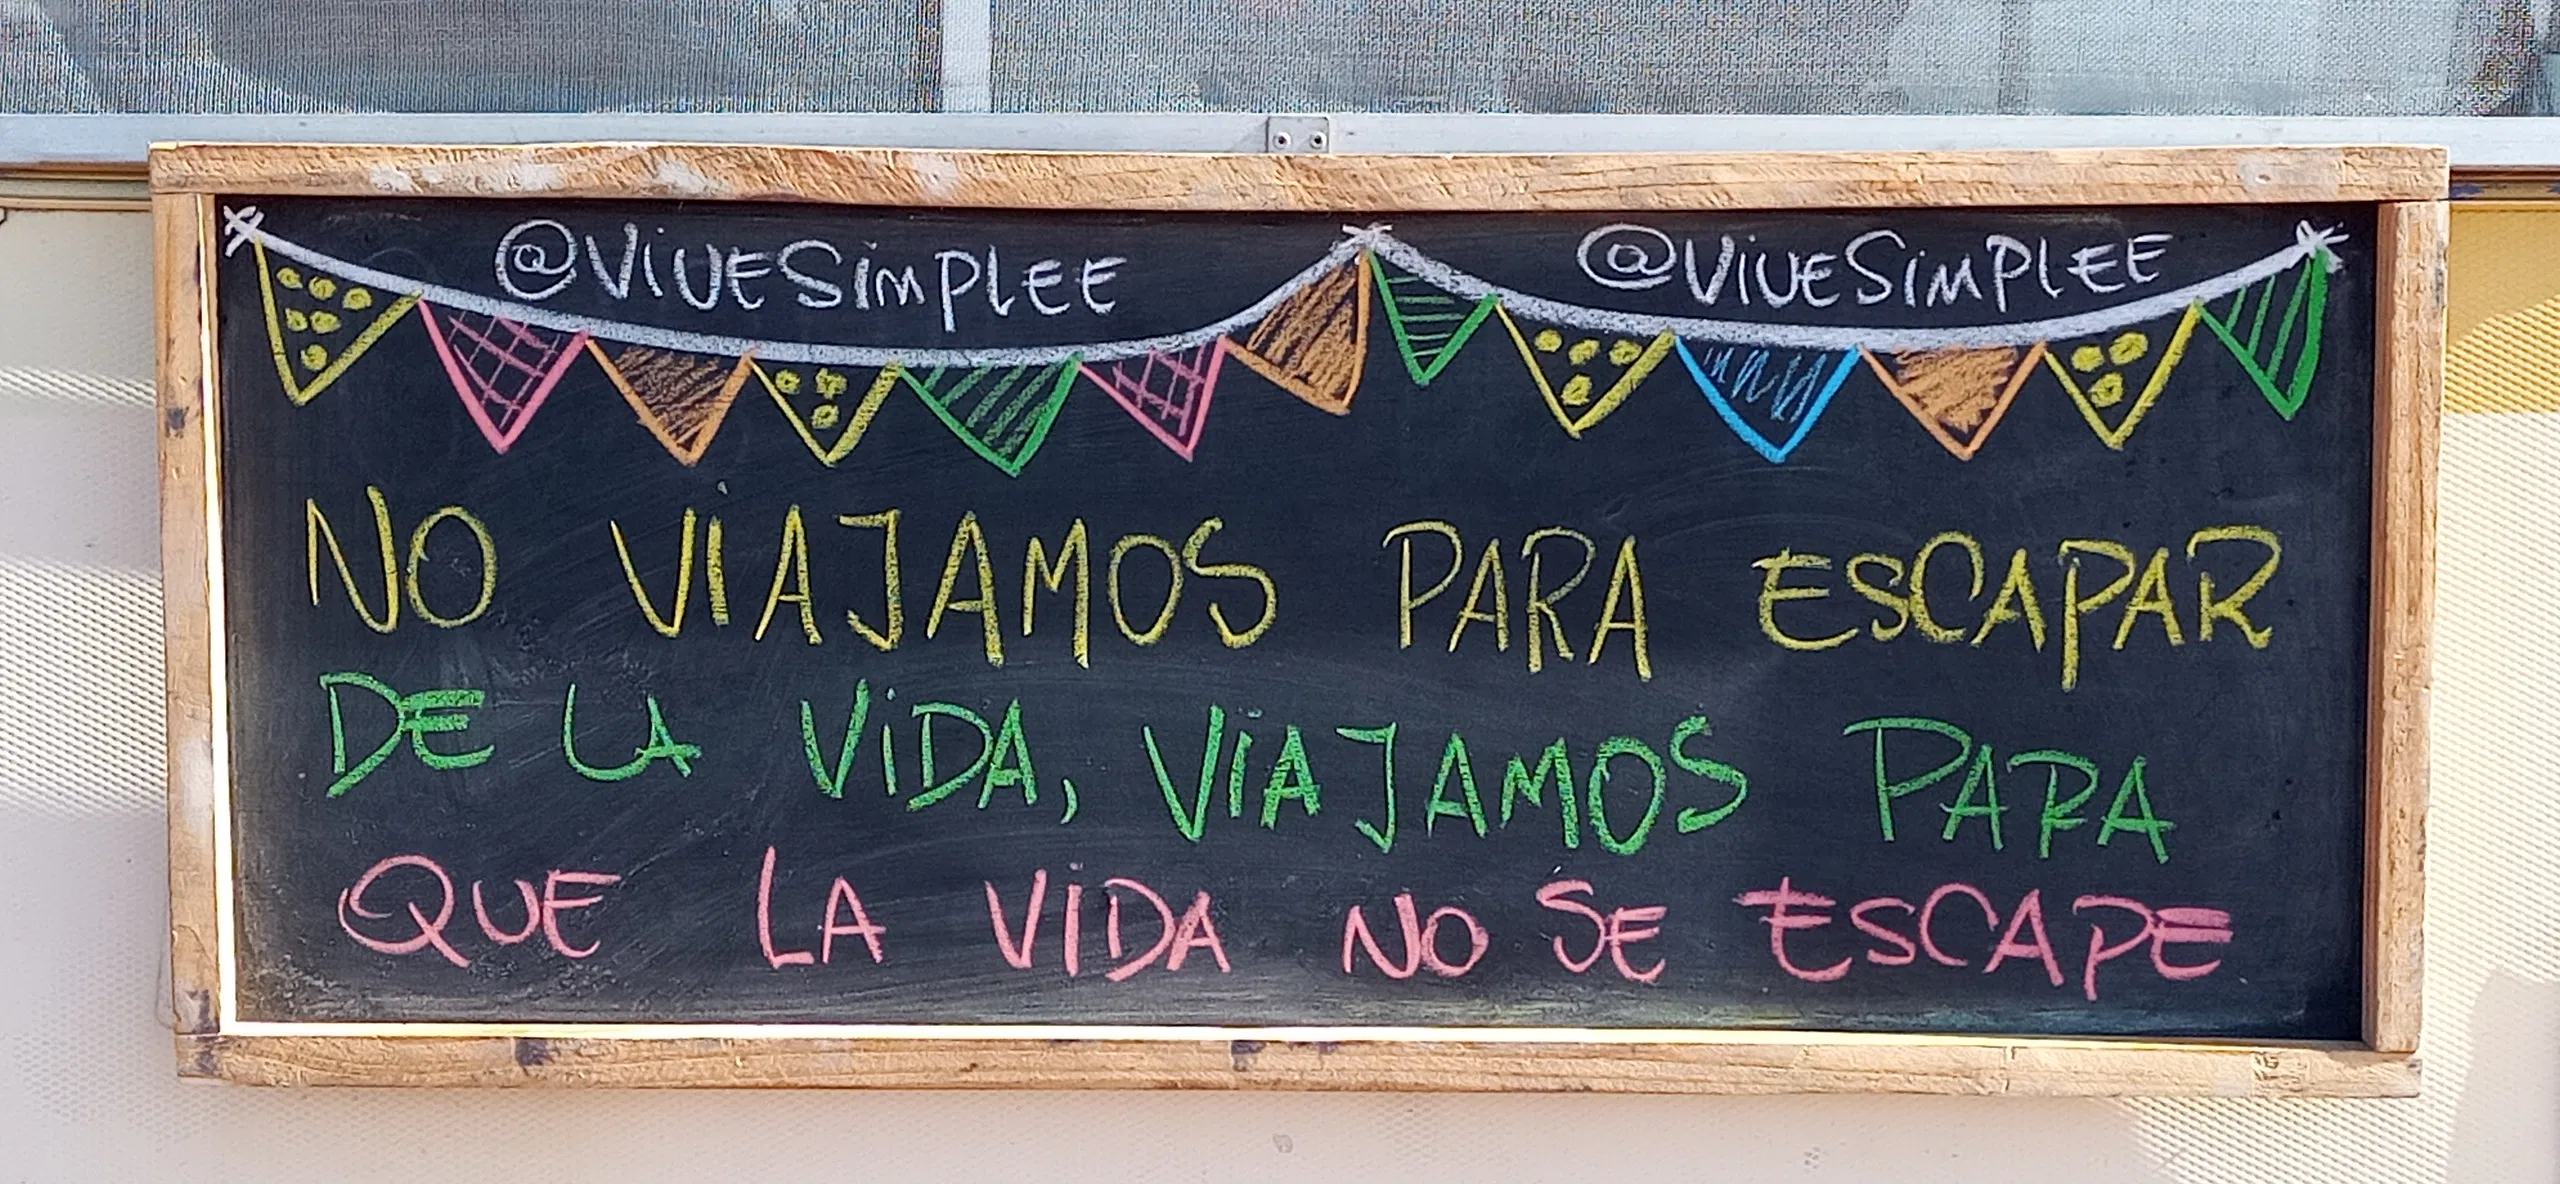 @ViVESiMPLEE @ViVESiMPLEE
NO ViAJAMOS PARA ESCAPAR
DE LA ViDA, ViAJAMOS PARA
QUE LA ViDA NO SE ESCAPE